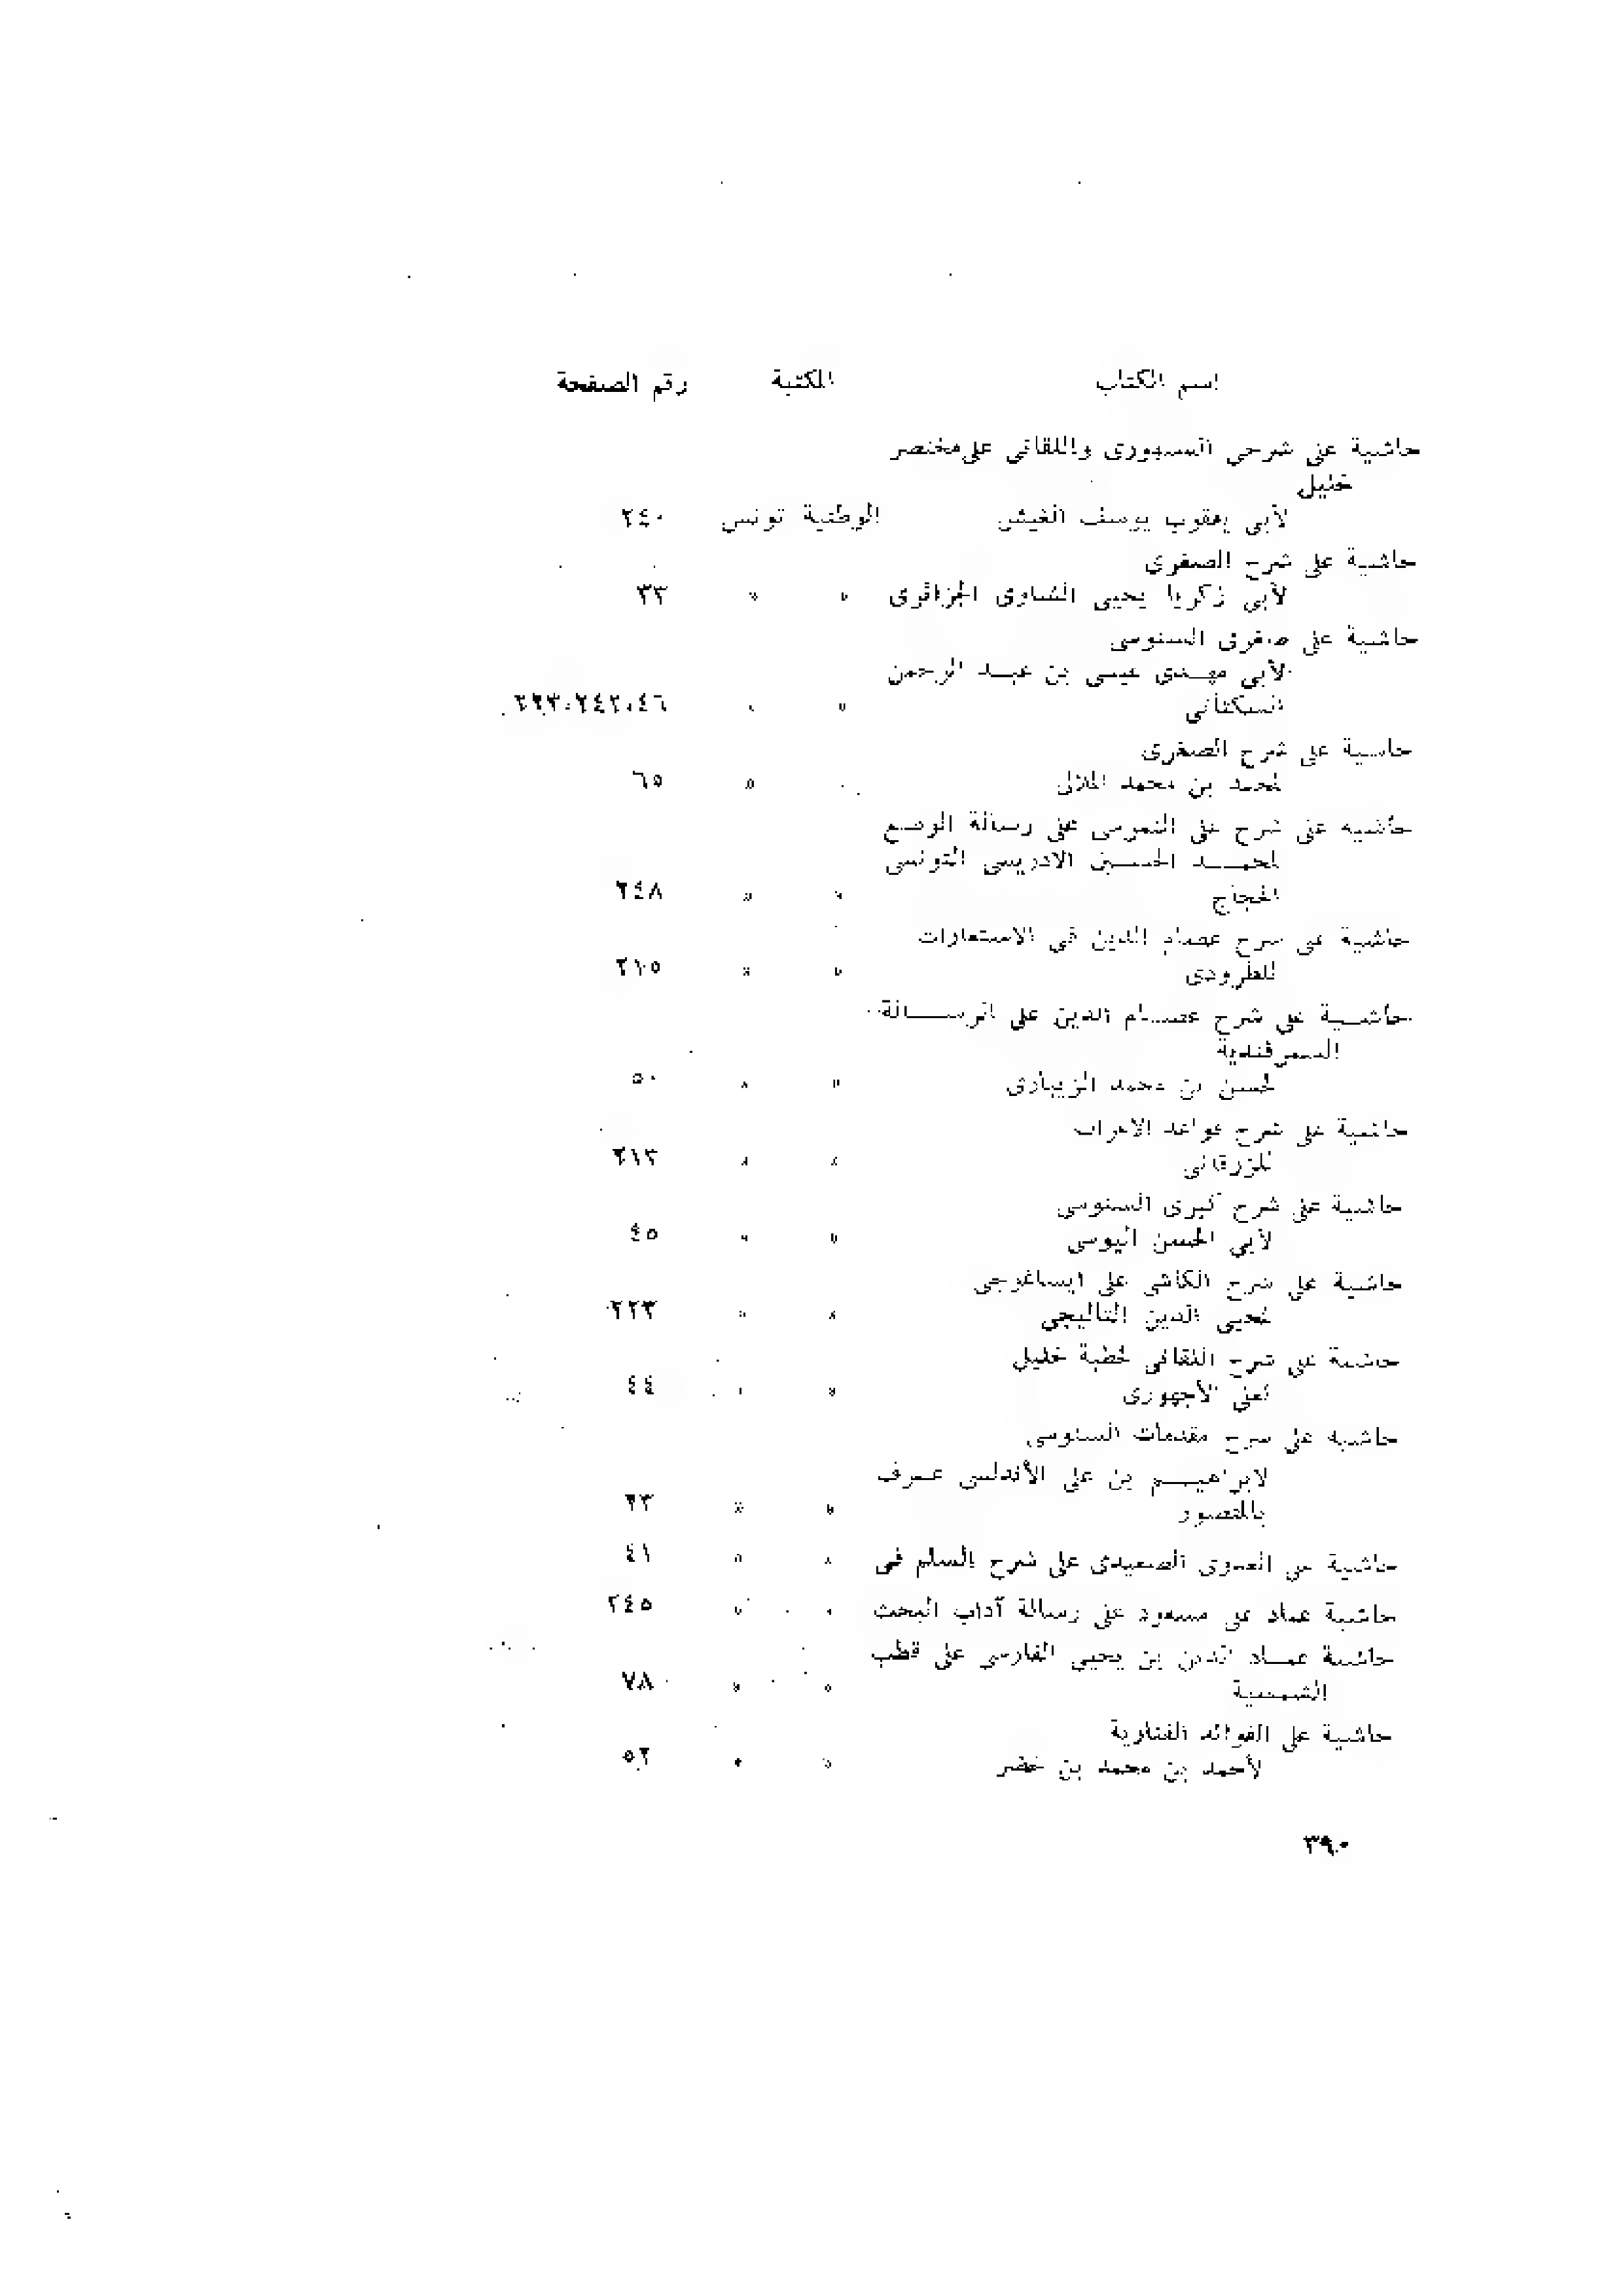 اسم الكتاب المكتبة رقم الصفحة
حاشية على شرحى السنهورى واللقانى على مختصر
خليل
لأبى يعقوب يوسف الفيشى الوطنية تونس ٢٤٠
حاشية على شرح الصغرى
لأبى زكريا يحيى الشاوى الجزائرى » » ٣٣
حاشية على صغرى السنوسى
لأبى مهـدى عيسى بن عبـد الرحمن
السكتانى » » ٤٦،٢٤٢،٢٩٣
حاشية على شرح الصغرى
لمحمد بن محمد الملالى » » ٦٥
حاشية على شرح على رسالة الوضع
لمحمـــد الادريسى التونسى
» » ٢٤٨
حاشية على شرح عصام الدين فى الاستعارات
للطرودى » » ٢١٥
حاشــية على شرح عصــام الدين على الرســـالة
السمرقندية
لحسن بن محمد الزيبارى » » ٥٠
حاشية على شرح قواعد الاعراب
للزرقانى » » ٢١٣
حاشية على شرح كبرى السنوسى
لأبى الحسن اليوسى » » ٤٥
حاشية على شرح الكاشى على ايساغوجى
لمحيى الدين التاليجى » » ٢٢٣
حاشية على شرح اللقانى لخطبة خليل
لعلى الأجهورى » » ٤٤
حاشية على شرح مقدمات السنوسى
لابراهيـــم بن على الأندلسى عـرف
» » ٢٣
حاشية على العدوى الصعيدى على شرح السلم فى » » ٤١
حاشية عماد على مسعود على رسالة آداب البحث » » ٢٤٥
حاشية عمــاد الدين بن يحيى الفارسى على قطب
الشمسية » » ٧٨
حاشية على الفوائد الفنارية
لأحمد بن محمد بن خضر » » ٥٢
٣٩٠